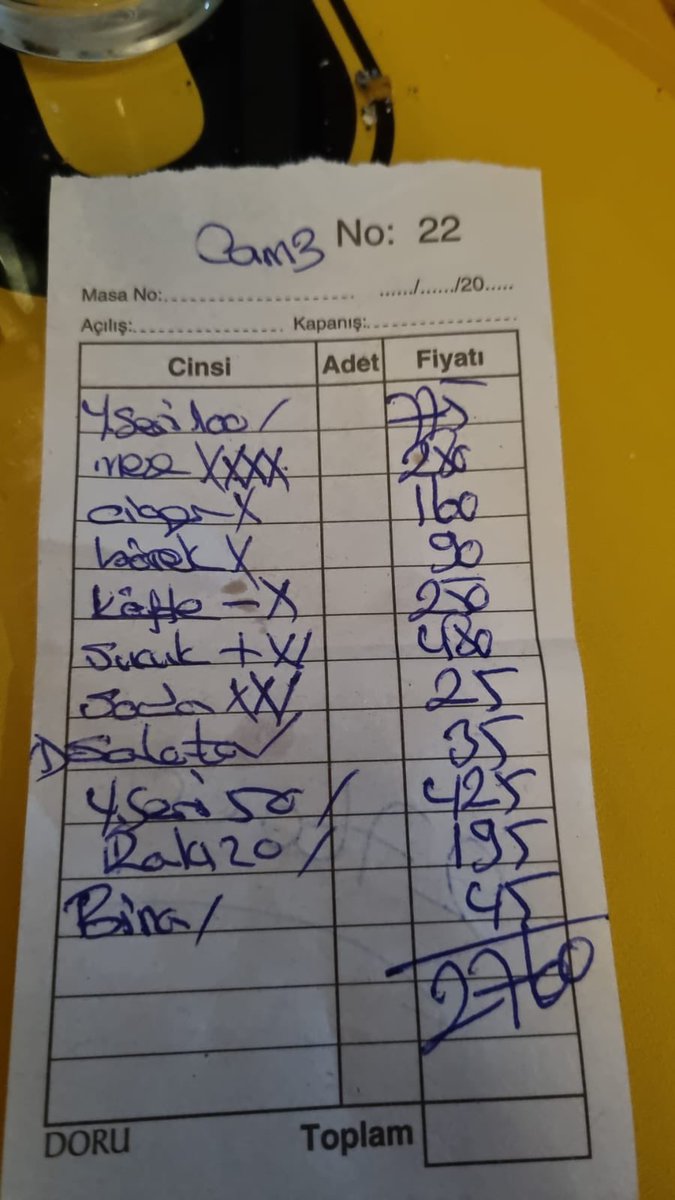 Cam3 No: 22
Masa No:.............................. ....../....../20.....
Açılış:....................... Kapanış:.......................
Cinsi Adet Fiyatı
Y.Seri 100 / 775
meze XXXX 280
ciğer - X 160
börek X 90
Köfte - X 250
Sucuk + X/ 480
Soda XX/ 25
Salata / 35
Y.Seri 50 / 425
Rakı 20 / 195
Bira / 45
2760
DORU Toplam